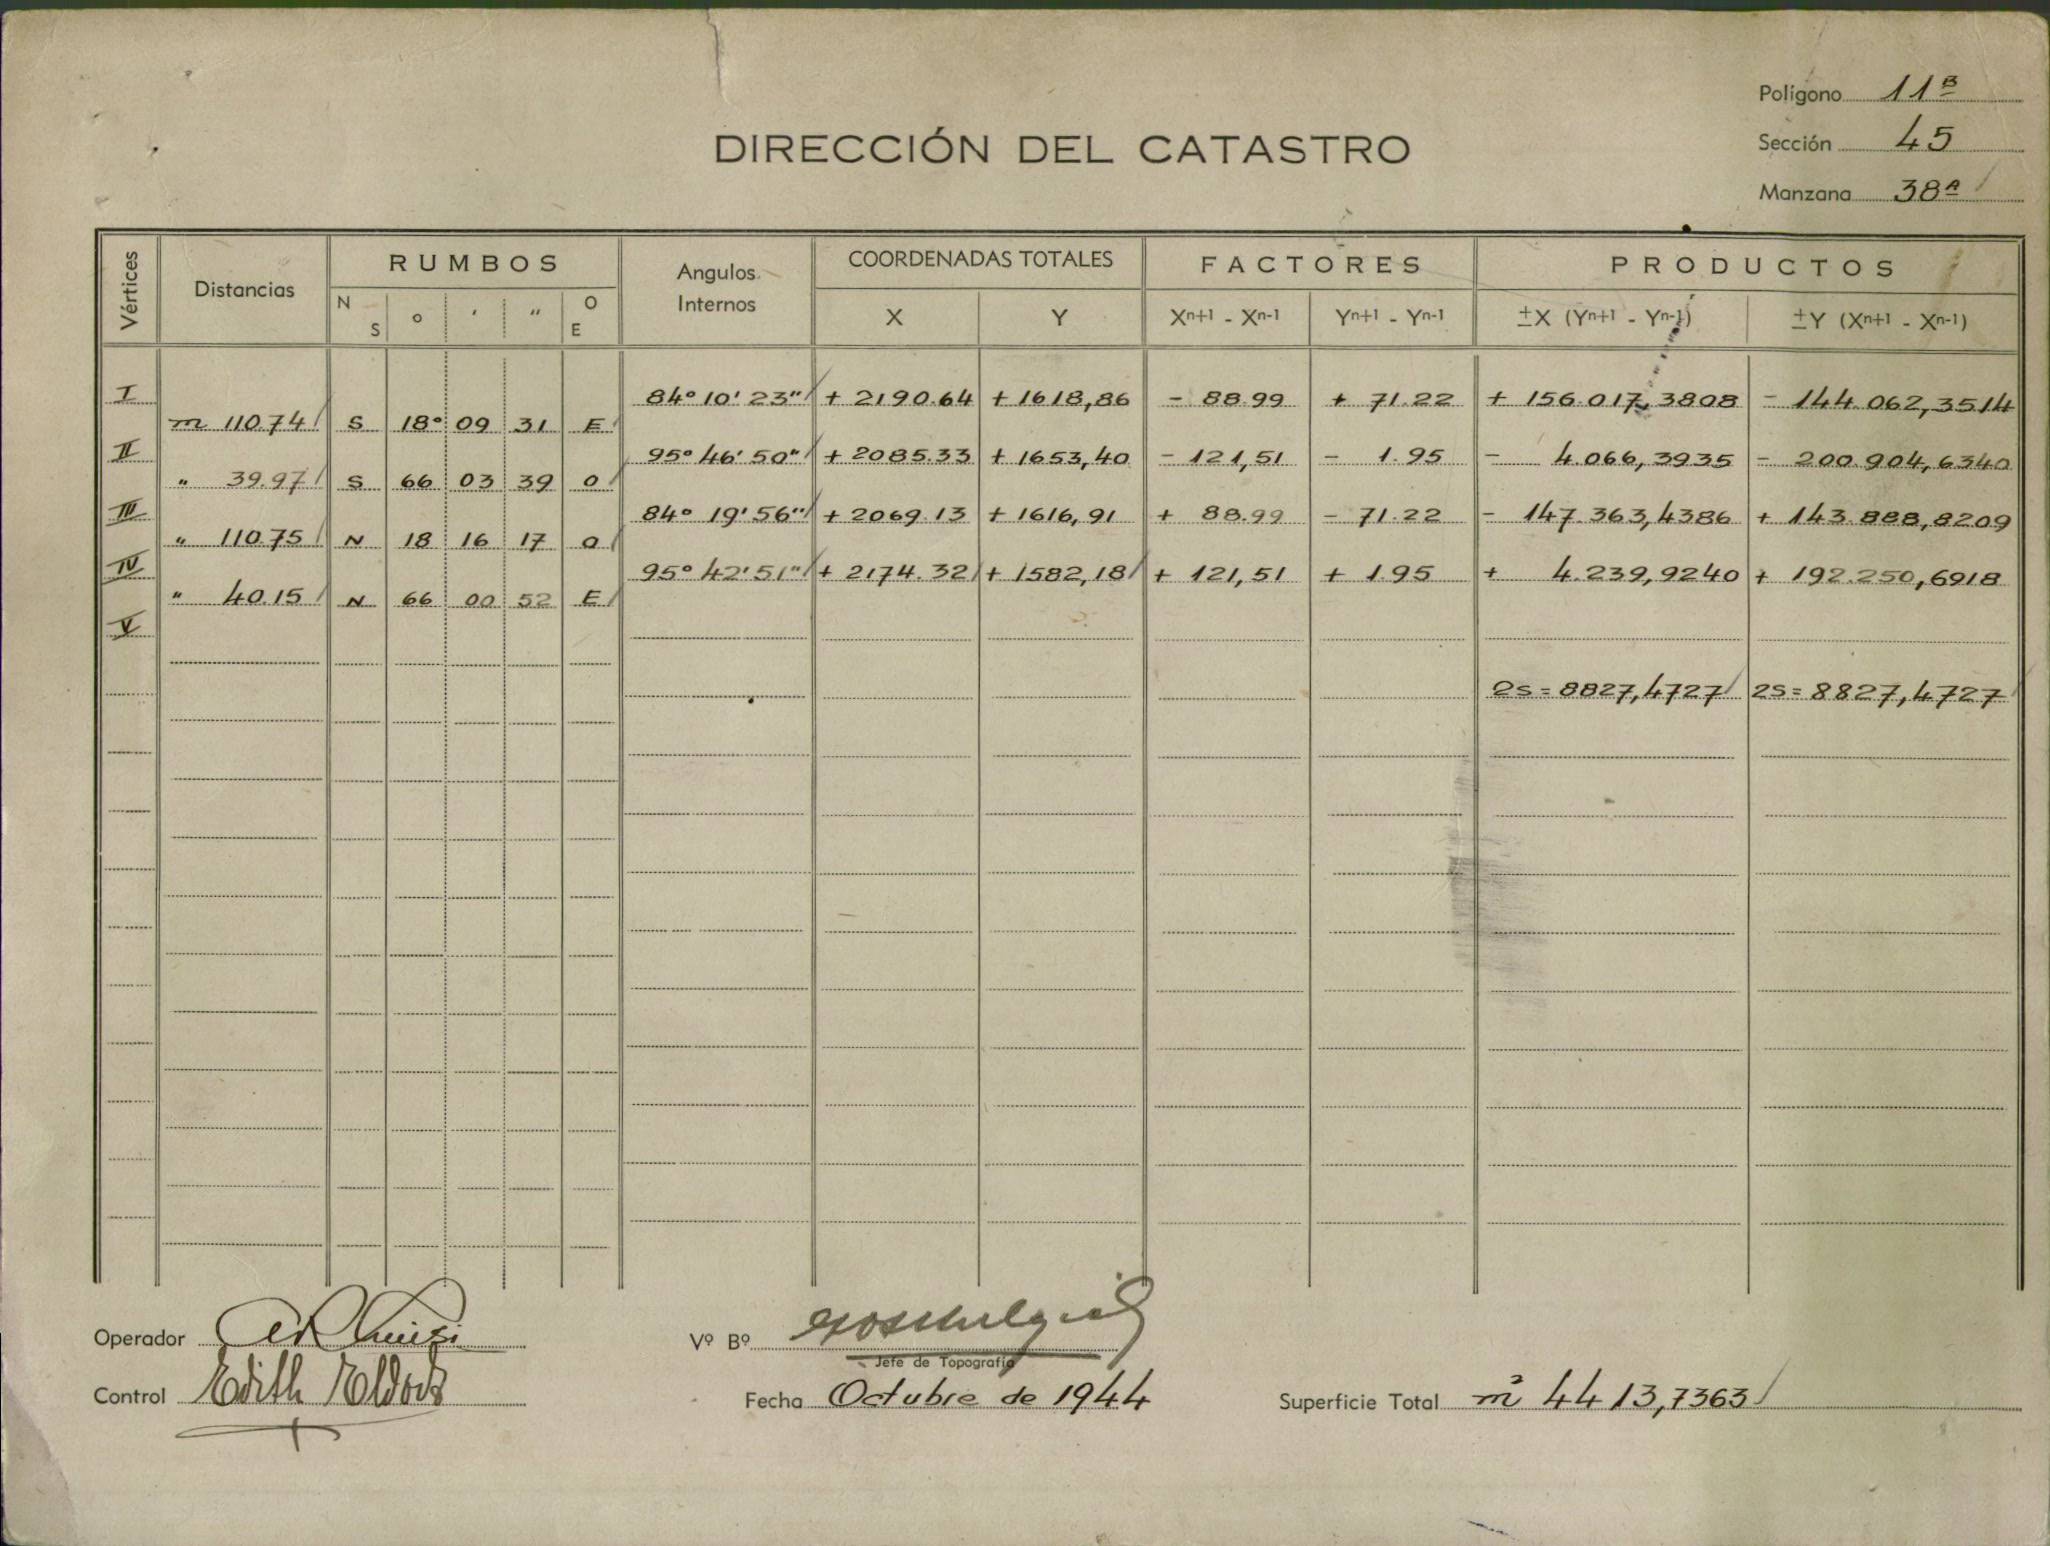 Polígono 11B
Sección 45
Manzana 38A
DIRECCIÓN DEL CATASTRO
Vértices Distancias RUMBOS Angulos Internos COORDENADAS TOTALES FACTORES PRODUCTOS
N S ° ' " O E X Y Xn+1 - Xn-1 Yn+1 - Yn-1 ±X (Yn+1 - Yn-1) ±Y (Xn+1 - Xn-1)
I 84° 10' 23" + 2190.64 + 1618,86 - 88.99 + 71.22 + 156.017,3808 - 144.062,3514
m 110.74 S 18° 09 31 E
II 95° 46' 50" + 2085.33 + 1653,40 - 121,51 - 1.95 - 4.066,3935 - 200.904,6340
" 39.97 S 66 03 39 O
III 84° 19' 56" + 2069.13 + 1616,91 + 88.99 - 71.22 - 147.363,4386 + 143.888,8209
" 110.75 N 18 16 17 O
IV 95° 42' 51" + 2174.32 + 1582,18 + 121,51 + 1.95 + 4.239,9240 + 192.250,6918
" 40.15 N 66 00 52 E
V
2S = 8827,4727 2S = 8827,4727
Operador
Vº Bº
Jefe de Topografía
Control Edith
Fecha Octubre de 1944
Superficie Total m² 4413,7363